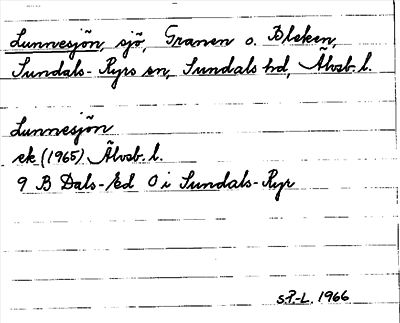 Lunnesjön, sjö, Granen o. Bleken,
Sundals-Ryrs sn, Sundals hd, Älvsb. l.
Lunnesjön
ek (1965) Älvsb. l.
9 B Dals-Ed O i Sundals-Ryr
S.P-L. 1966